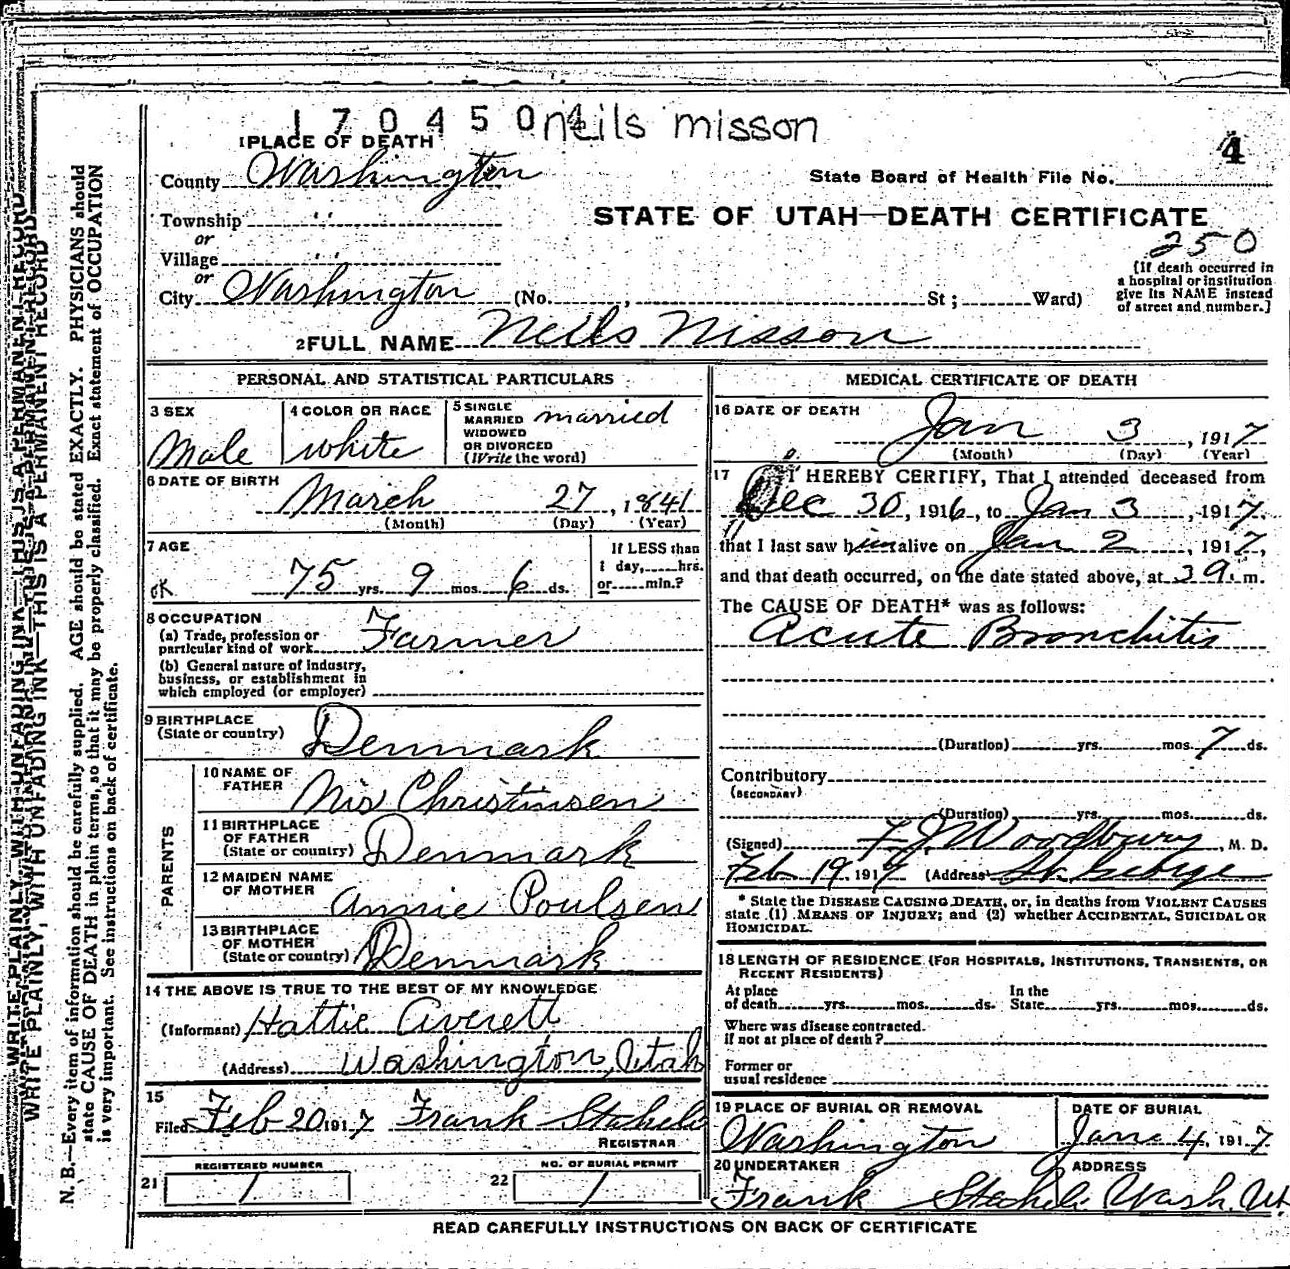 1704504 neils misson
1 PLACE OF DEATH
4
County Washington
State Board of Health File No.
Township " "
STATE OF UTAH—DEATH CERTIFICATE
or
250
Village " "
or
City Washington (No. , St ; Ward)
[If death occurred in
a hospital or institution
give its NAME instead
of street and number.]
2 FULL NAME Neils Nisson
PERSONAL AND STATISTICAL PARTICULARS
3 SEX
Male
4 COLOR OR RACE
white
5 SINGLE
MARRIED
WIDOWED
OR DIVORCED
(Write the word)
married
6 DATE OF BIRTH
March 27, 1841
(Month) (Day) (Year)
7 AGE
OK 75 yrs. 9 mos. 6 ds.
If LESS than
1 day, hrs.
or min.?
8 OCCUPATION
(a) Trade, profession or
particular kind of work Farmer
(b) General nature of industry,
business, or establishment in
which employed (or employer)
9 BIRTHPLACE
(State or country) Denmark
PARENTS
10 NAME OF
FATHER Nis Christinsen
11 BIRTHPLACE
OF FATHER
(State or country) Denmark
12 MAIDEN NAME
OF MOTHER Annie Poulsen
13 BIRTHPLACE
OF MOTHER
(State or country) Denmark
14 THE ABOVE IS TRUE TO THE BEST OF MY KNOWLEDGE
(Informant) Hattie Averett
(Address) Washington, Utah
15
Filed Feb 20 1917 Frank Staheli
REGISTRAR
REGISTERED NUMBER
21 1
NO. OF BURIAL PERMIT
22 1
MEDICAL CERTIFICATE OF DEATH
16 DATE OF DEATH
Jan 3, 1917
(Month) (Day) (Year)
17 I HEREBY CERTIFY, That I attended deceased from
Dec 30, 1916, to Jan 3, 1917.
that I last saw him alive on Jan 2, 1917,
and that death occurred, on the date stated above, at 3 a. m.
The CAUSE OF DEATH* was as follows:
Acute Bronchitis
(Duration) yrs. mos. 7 ds.
Contributory
(SECONDARY)
(Duration) yrs. mos. ds.
(Signed) F J Woodbury, M. D.
Feb 19, 1917 (Address) St. George
* State the DISEASE CAUSING DEATH, or, in deaths from VIOLENT CAUSES
state (1) MEANS OF INJURY; and (2) whether ACCIDENTAL, SUICIDAL OR
HOMICIDAL.
18 LENGTH OF RESIDENCE (FOR HOSPITALS, INSTITUTIONS, TRANSIENTS, OR
RECENT RESIDENTS)
At place
of death yrs. mos. ds.
In the
State yrs. mos. ds.
Where was disease contracted,
if not at place of death?
Former or
usual residence
19 PLACE OF BURIAL OR REMOVAL
Washington
DATE OF BURIAL
Jan 4, 1917
20 UNDERTAKER
Frank Staheli
ADDRESS
Wash. Ut.
READ CAREFULLY INSTRUCTIONS ON BACK OF CERTIFICATE
WRITE PLAINLY, WITH UNFADING INK—THIS IS A PERMANENT RECORD
N. B.—Every item of information should be carefully supplied. AGE should be stated EXACTLY. PHYSICIANS should
state CAUSE OF DEATH in plain terms, so that it may be properly classified. Exact statement of OCCUPATION
is very important. See instructions on back of certificate.